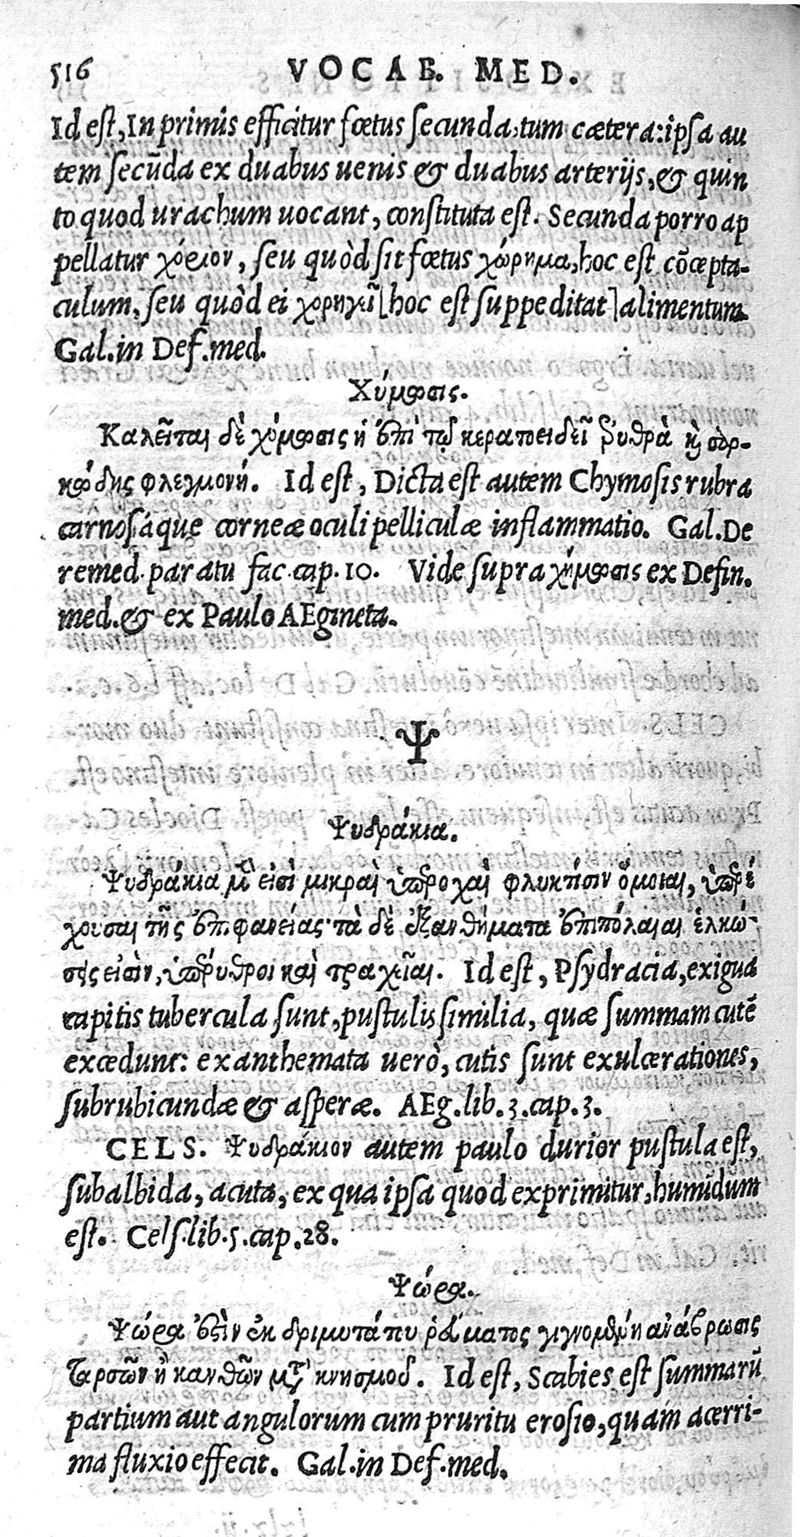 516 VOCAB. MED.
Id est, In primis efficitur fœtus secunda, tum cætera: ipsa au
tem secūda ex duabus uenis & duabus arterijs, & quin
to quod urachum uocant, constituta est. Secunda porro ap
pellatur χόριον, seu quòd sit fœtus χώρημα, hoc est cōcepta-
culum, seu quòd ei χορηγεῖ [hoc est suppeditat] alimentum.
Gal. in Def. med.
Χύμωσις.
Καλεῖται δὲ χύμωσις ἡ ἐπὶ τῷ κερατοειδεῖ ἐρυθρὰ καὶ σαρ-
κώδης φλεγμονή. Id est, Dicta est autem Chymosis rubra
carnosáque corneæ oculi pelliculæ inflammatio. Gal. De
remed. paratu fac. cap. 10. Vide supra χήμωσις ex Defin.
med. & ex Paulo AEgineta.
Ψ
Ψυδράκια.
Ψυδράκια μὲν εἰσὶ μικραὶ ὑπεροχαὶ φλυκτίσιν ὅμοιαι, ὑπερέ
χουσαι τῆς ἐπιφανείας· τὰ δὲ ἐξανθήματα ἐπιπόλαιαι ἑλκώ-
σεις εἰσὶν, ὑπέρυθροι καὶ τραχεῖαι. Id est, Psydracia, exigua
capitis tubercula sunt, pustulis similia, quæ summam cutē
excedunt: exanthemata uerò, cutis sunt exulcerationes,
subrubicundæ & asperæ. AEg. lib. 3. cap. 3.
CELS. Ψυδράκιον autem paulo durior pustula est,
subalbida, acuta, ex qua ipsa quod exprimitur, humidum
est. Cels. lib. 5. cap. 28.
Ψώρα.
Ψώρα ἐστὶν ἐκ δριμυτάτου ῥεύματος γιγνομένη ἀνάβρωσις
ταρσῶν ἢ κανθῶν μετὰ κνησμοῦ. Id est, Scabies est summarū
partium aut angulorum cum pruritu erosio, quam acerri-
ma fluxio effecit. Gal. in Def. med.